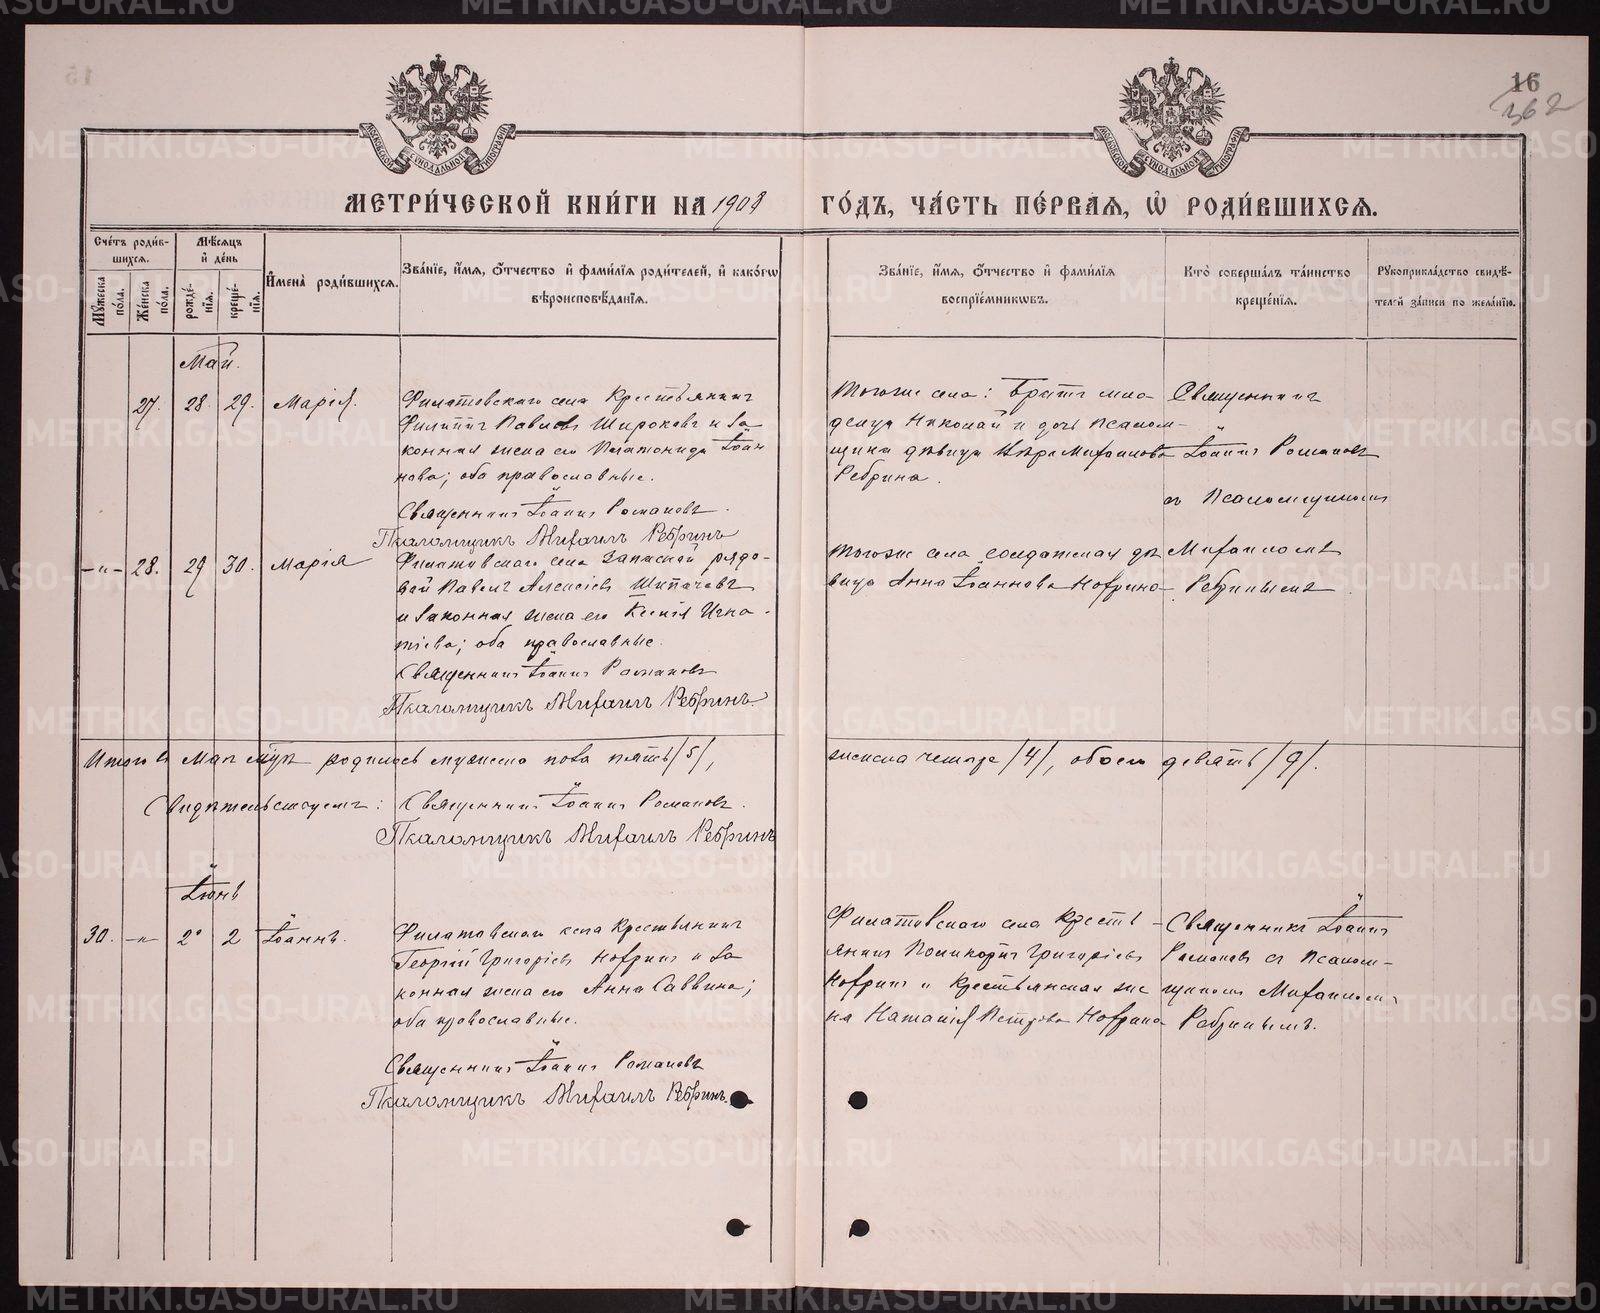 15
16
362
МОСКОВСКОЙ СѴНОДАЛЬНОЙ ТИПОГРАФІИ
МОСКОВСКОЙ СѴНОДАЛЬНОЙ ТИПОГРАФІИ
МЕТРИ́ЧЕСКОЙ КНИ́ГИ НА 1908 ГО́ДЪ, ЧА́СТЬ ПЕ́РВАЯ, Ѡ РОДИ́ВШИХСЯ.
Сче́тъ роди́в-
шихся.
Му́жеска по́ла.
Же́нска по́ла.
Мѣ́сяцъ
и де́нь
рожде́-
нія.
креще́-
нія.
Имена̀ роди́вшихся.
Зва́ніе, и́мя, о́тчество и фами́лія роди́телей, и како́гѡ
вѣроисповѣ́данія.
Зва́ніе, и́мя, о́тчество и фами́лія
воспріе́мниковъ.
Кто̀ соверша́лъ та́инство
креще́нія.
Рукоприкла́дство свидѣ́-
телей за́писи по жела́нію.
Май.
27. 28. 29. Марія.
Филатовскаго села Крестьянинъ
Филиппъ Павловъ Широковъ и за-
конная жена его Платонида Іоан
нова; оба православные.
Священникъ Іоаннъ Романовъ.
Псаломщикъ Михаилъ Ребринъ
Тогоже села: Братъ мла-
денца Николай и дочь псалом-
щика дѣвица Вѣра Михаилова
Ребрина.
Священникъ
Іоаннъ Романовъ
съ Псаломщикомъ
-"- 28. 29 30. Марія
Филатовскаго села Запасной рядо-
вой Павелъ Алексіевъ Шипачевъ
и законная жена его Ксенія Игна-
тіева; оба православные.
Священникъ Іоаннъ Романовъ
Псаломщикъ Михаилъ Ребринъ
Тогоже села солдатская дѣ
вица Анна Іоаннова Ноhрина
Михаиломъ
Ребринымъ.
Итого въ Маѣ м҃цѣ родилось мужеска пола пять /5/, женска четыре /4/, обоего девять /9/.
Свидѣтельствуемъ: Священникъ Іоаннъ Романовъ.
Псаломщикъ Михаилъ Ребринъ
Іюнь
30. -"- 2 2 Іоаннъ.
Филатовскаго села Крестьянинъ
Георгій Григоріевъ Ноhринъ и за
конная жена его Анна Саввина;
оба православные.
Священникъ Іоаннъ Романовъ
Псаломщикъ Михаилъ Ребринъ.
Филатовскаго села Кресть-
янинъ Поликарпъ Григоріевъ
Ноhринъ и Крестьянская же
на Наталія Петрова Ноhрина
Священникъ Іоаннъ
Романовъ съ Псалом-
щикомъ Михаиломъ
Ребринымъ.
METRIKI.GASO-URAL.RU